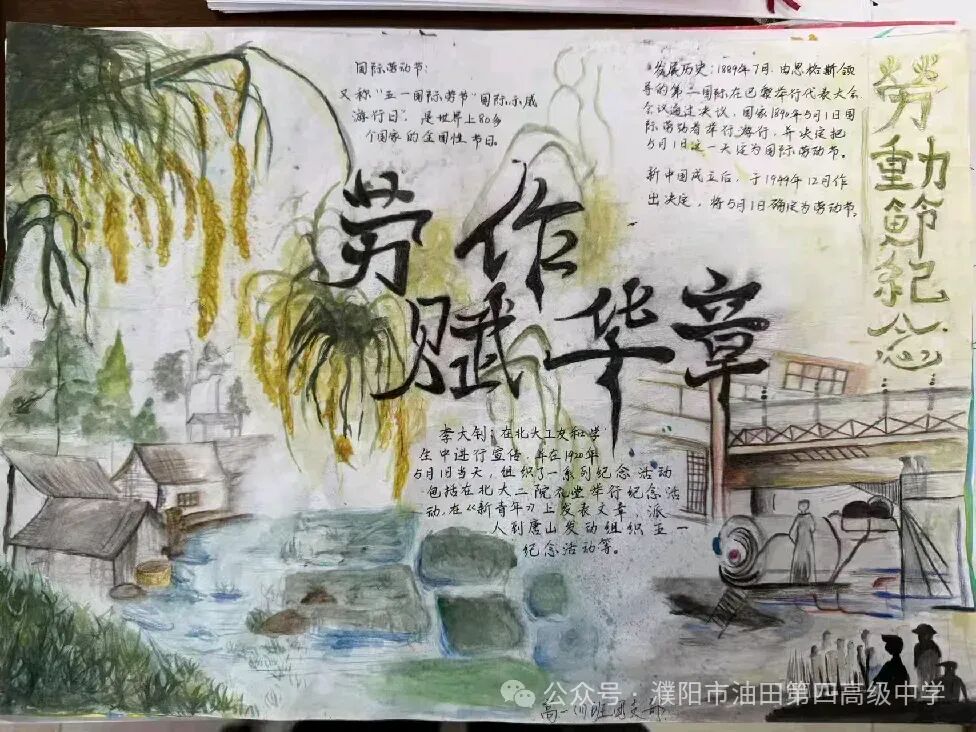 国际劳动节:
又称“五一国际劳节”“国际示威
游行日”, 是世界上80多
个国家的全国性节日。
发展历史:1889年7月,由恩格斯领
导的第二国际在巴黎举行代表大会
会议通过决议,国家1890年5月1日国
际劳动者举行游行,并决定把
5月1日这一天定为国际劳动节。
新中国成立后,于1949年12月作
出决定,将5月1日确定为劳动节。
勞動節紀念
劳作
赋华章
李大钊:在北大工友和学
生中进行宣传,并在1920年
5月1日当天,组织了一系列纪念活动
包括在北大二院礼堂举行纪念活
动,在《新青年》上发表文章,派
人到唐山发动组织五一
纪念活动等。
公众号·濮阳市油田第四高级中学
高一(1)班团支部